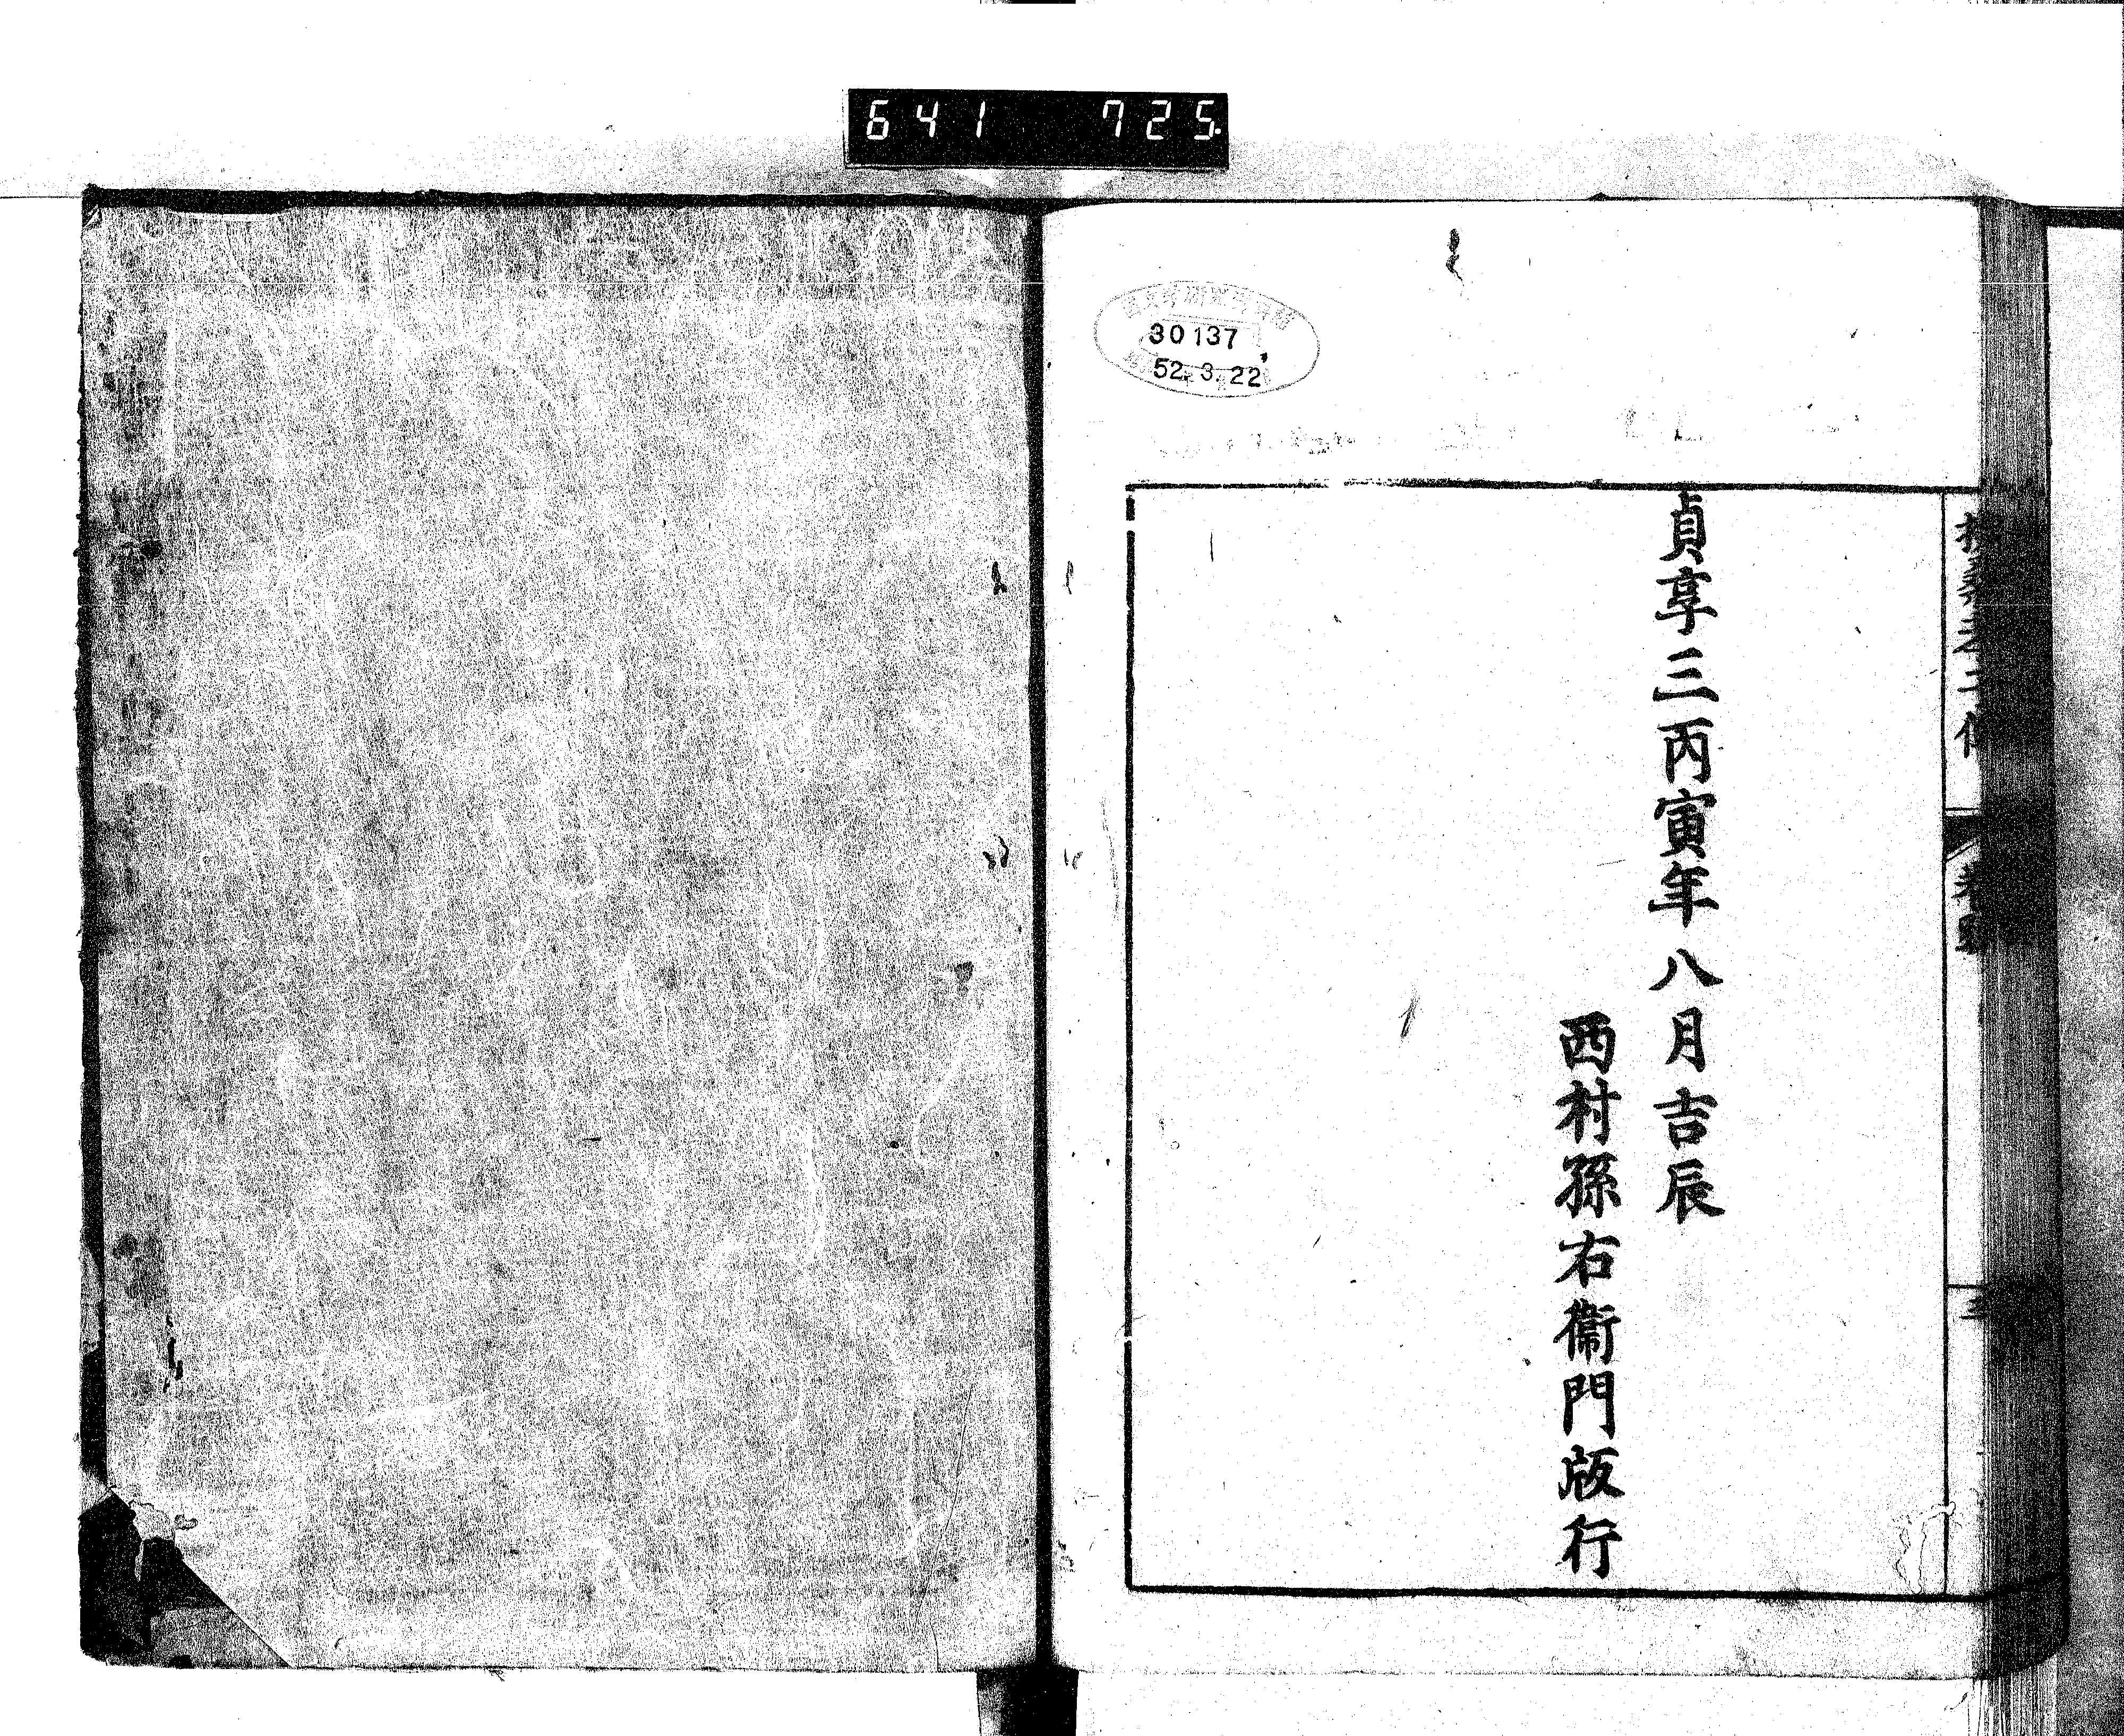 641 725
30137
52.3.22
貞享三丙寅年八月吉辰
西村孫右衞門版行